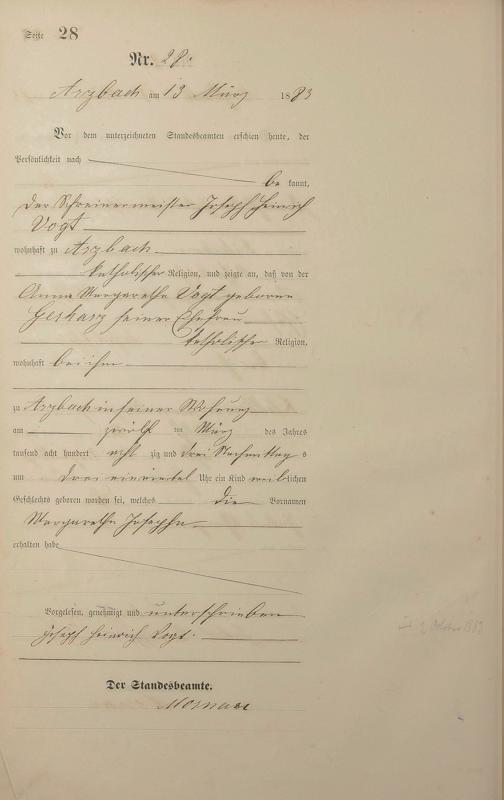 Seite 28
Nr. 28.
Arzbach am 13 März 1883
Vor dem unterzeichneten Standesbeamten erschien heute, der
Persönlichkeit nach
be kannt,
der Schreinermeister Joseph Heinrich
Vogt
wohnhaft zu Arzbach
katholischer Religion, und zeigte an, daß von der
Anna Margarethe Vogt geborne
Gerharz seiner Ehefrau
katholischer Religion,
wohnhaft bei ihm
zu Arzbach in seiner Wohnung
am zwölf ten März des Jahres
tausend acht hundert acht zig und drei Nachmittag s
um drei einviertel Uhr ein Kind weiblichen
Geschlechts geboren worden sei, welches die Vornamen
Margarethe Josepha
erhalten habe
Vorgelesen, genehmigt und unterschrieben
Joseph Heinrich Vogt.
Der Standesbeamte.
2 Oktober 1883